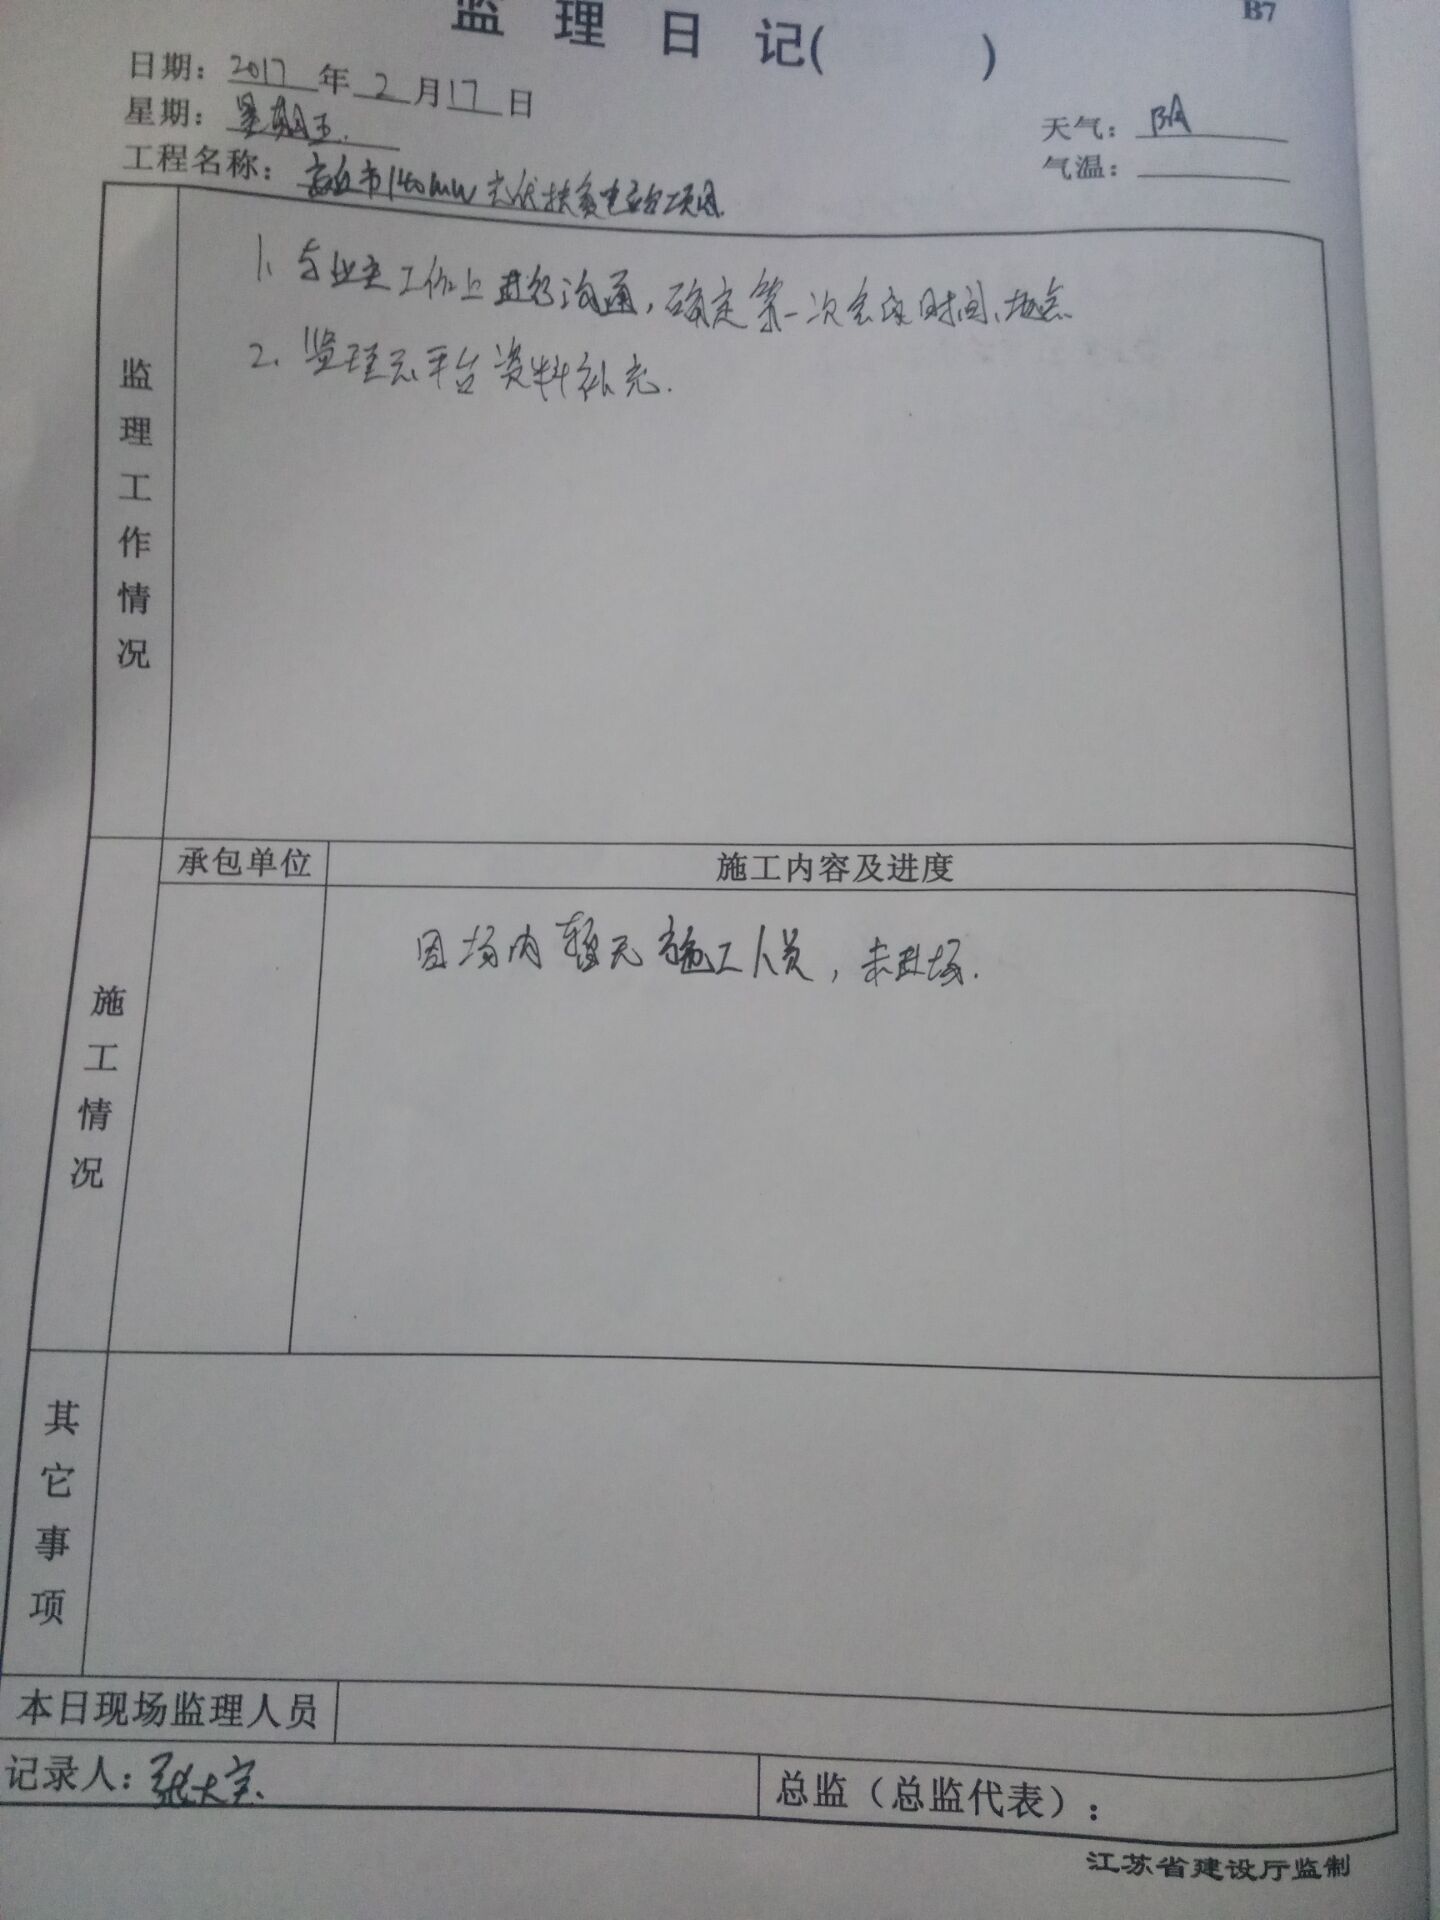 监理日记( )
B7
日期：2017年2月17日
星期：星期五.
天气：阴
气温：
工程名称：市140MW光伏扶贫电站项目
1、与业主工作上进行沟通，确定第一次会议时间、地点
2、监理云平台资料补充.
监理工作情况
承包单位
施工内容及进度
因场内暂无施工人员，未进场.
施工情况
其它事项
本日现场监理人员
记录人：张大
总监（总监代表）：
江苏省建设厅监制